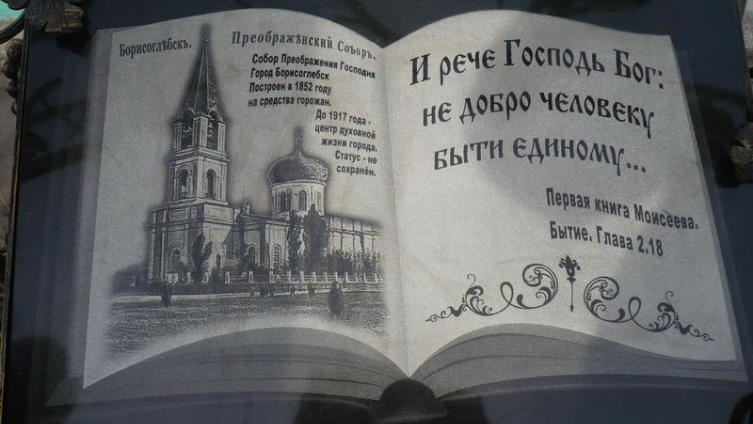 Борисоглѣбскъ. Преображѣнский Соборъ.
Собор Преображения Господня
Город Борисоглебск
Построен в 1852 году
на средства горожан.
До 1917 года -
центр духовной
жизни города.
Статус - не
сохранён.
И рече Господь Бог:
не добро человеку
быти единому...
Первая книга Моисеева.
Бытие. Глава 2.18